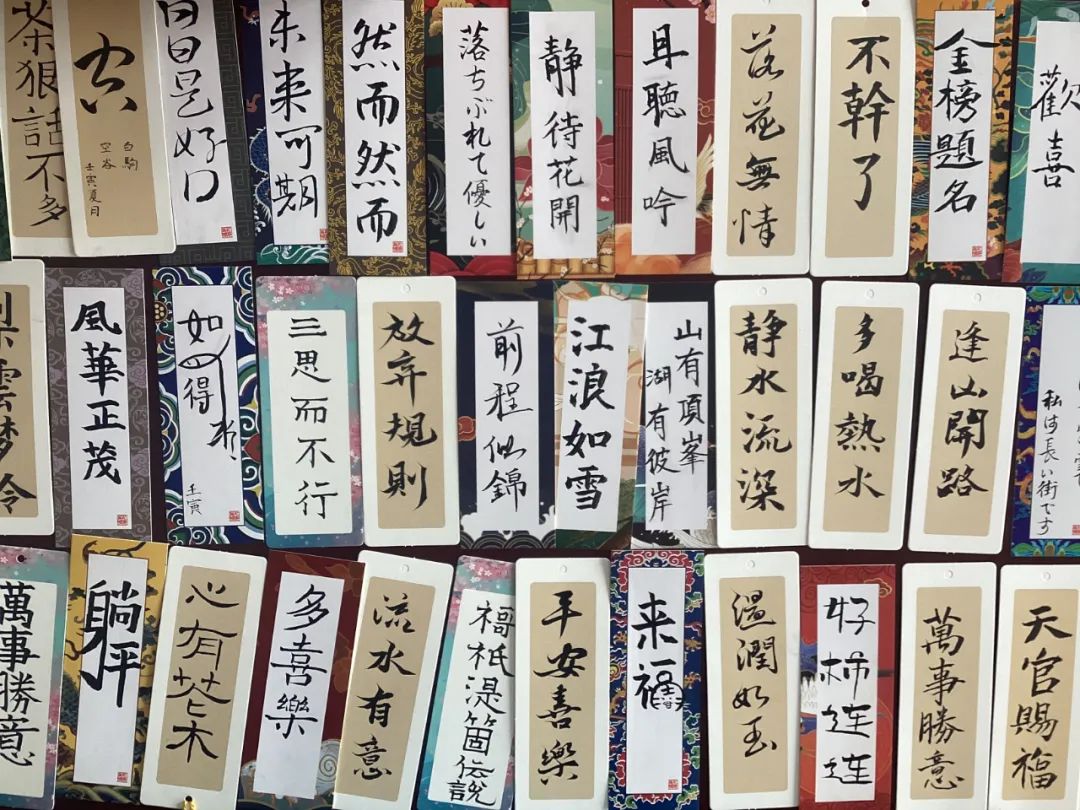 茶狠話不多
白駒
空谷
壬寅夏月
日日是好日
未来可期
然而然而
落ちぶれて優しい
静待花開
耳聽風吟
落花無情
不幹了
金榜題名
歡喜
雲梦冷
風華正茂
如得水
壬寅
三思而不行
放弃規則
前程似錦
江浪如雪
山有頂峯
湖有彼岸
静水流深
多喝熱水
逢山開路
私は長い街です
萬事勝意
躺坪
心有花木
多喜樂
流水有意
福祇湜箇伝説
平安喜樂
来福
温潤如玉
好柿连连
萬事勝意
天官賜福